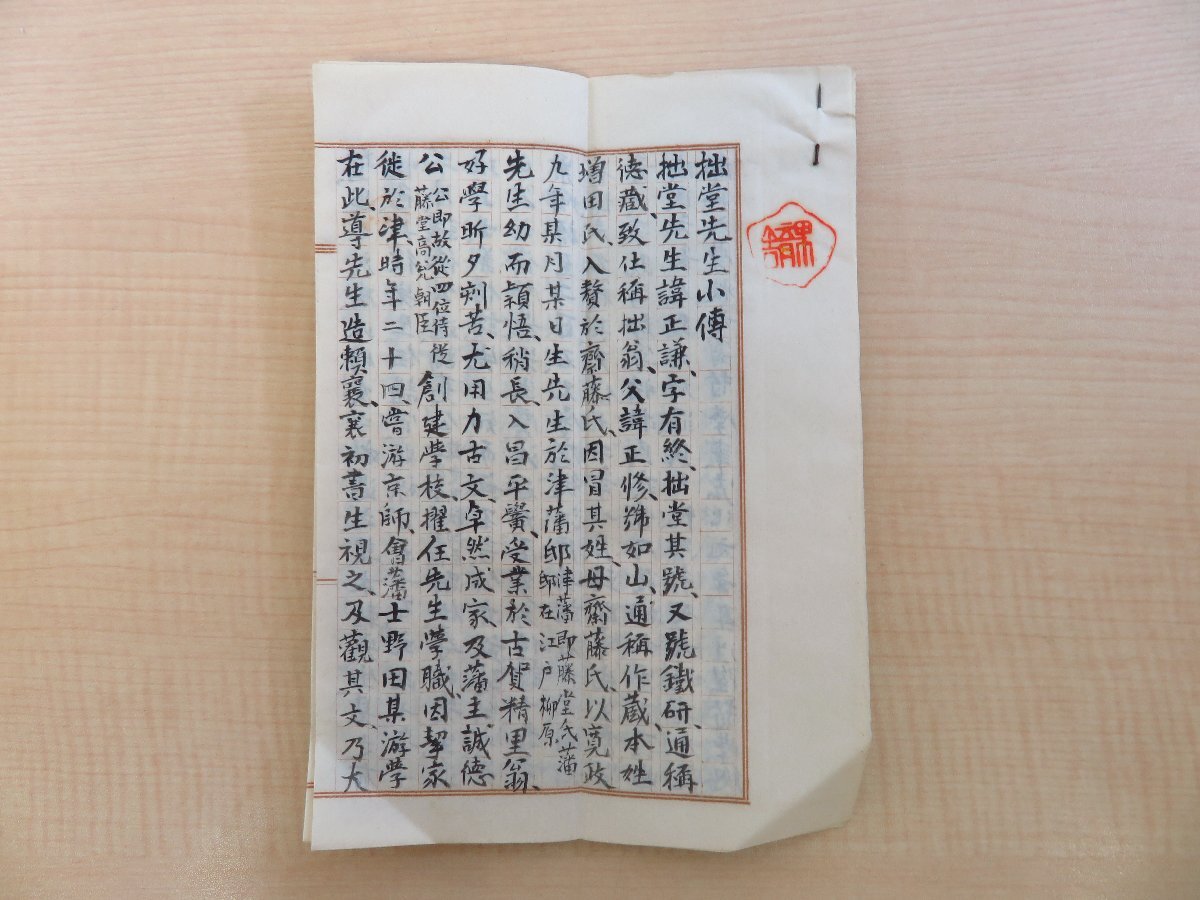 拙堂先生小傳
拙堂先生諱正謙、字有終、拙堂其號、又號鐵研、通稱
徳藏、致仕稱拙翁、父諱正修、號如山、通稱作蔵、本姓
增田氏、入贅於齋藤氏、因冒其姓、母齋藤氏、以寛政
九年某月某日生先生於津藩邸津藩即藤堂氏藩邸在江戸柳原
先生幼而穎悟、稍長、入昌平黌、受業於古賀精里翁、
好學昕夕刻苦、尤用力古文、卓然成家、及藩主誠徳
公公即故從四位侍從藤堂高兌朝臣創建学校、擢任先生學職、因挈家
徙於津、時年二十四、嘗游京師、會藩士野田某游學
在此、導先生造賴襄、襄初書生視之、及觀其文、乃大